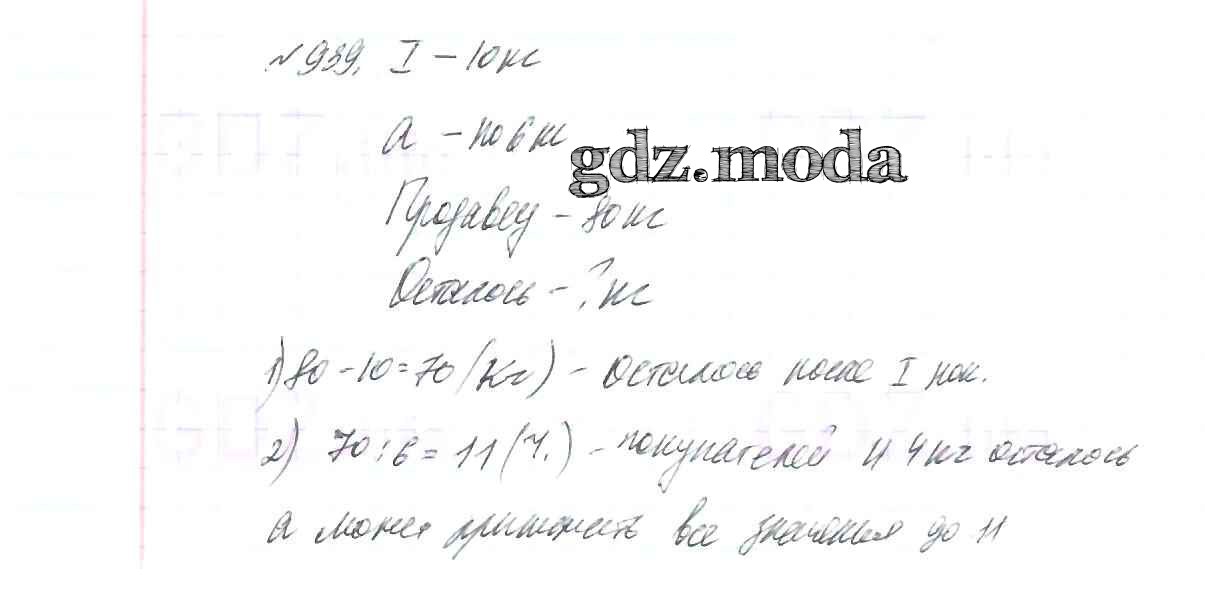 №939. I – 10 кг
а – по 6 кг
gdz.moda
Продавец – 80 кг
Осталось – ? кг
1) 80 – 10 = 70 (кг) – осталось после I пок.
2) 70 : 6 = 11 (ч.) – покупателей и 4 кг осталось
а может принимать все значения до 11